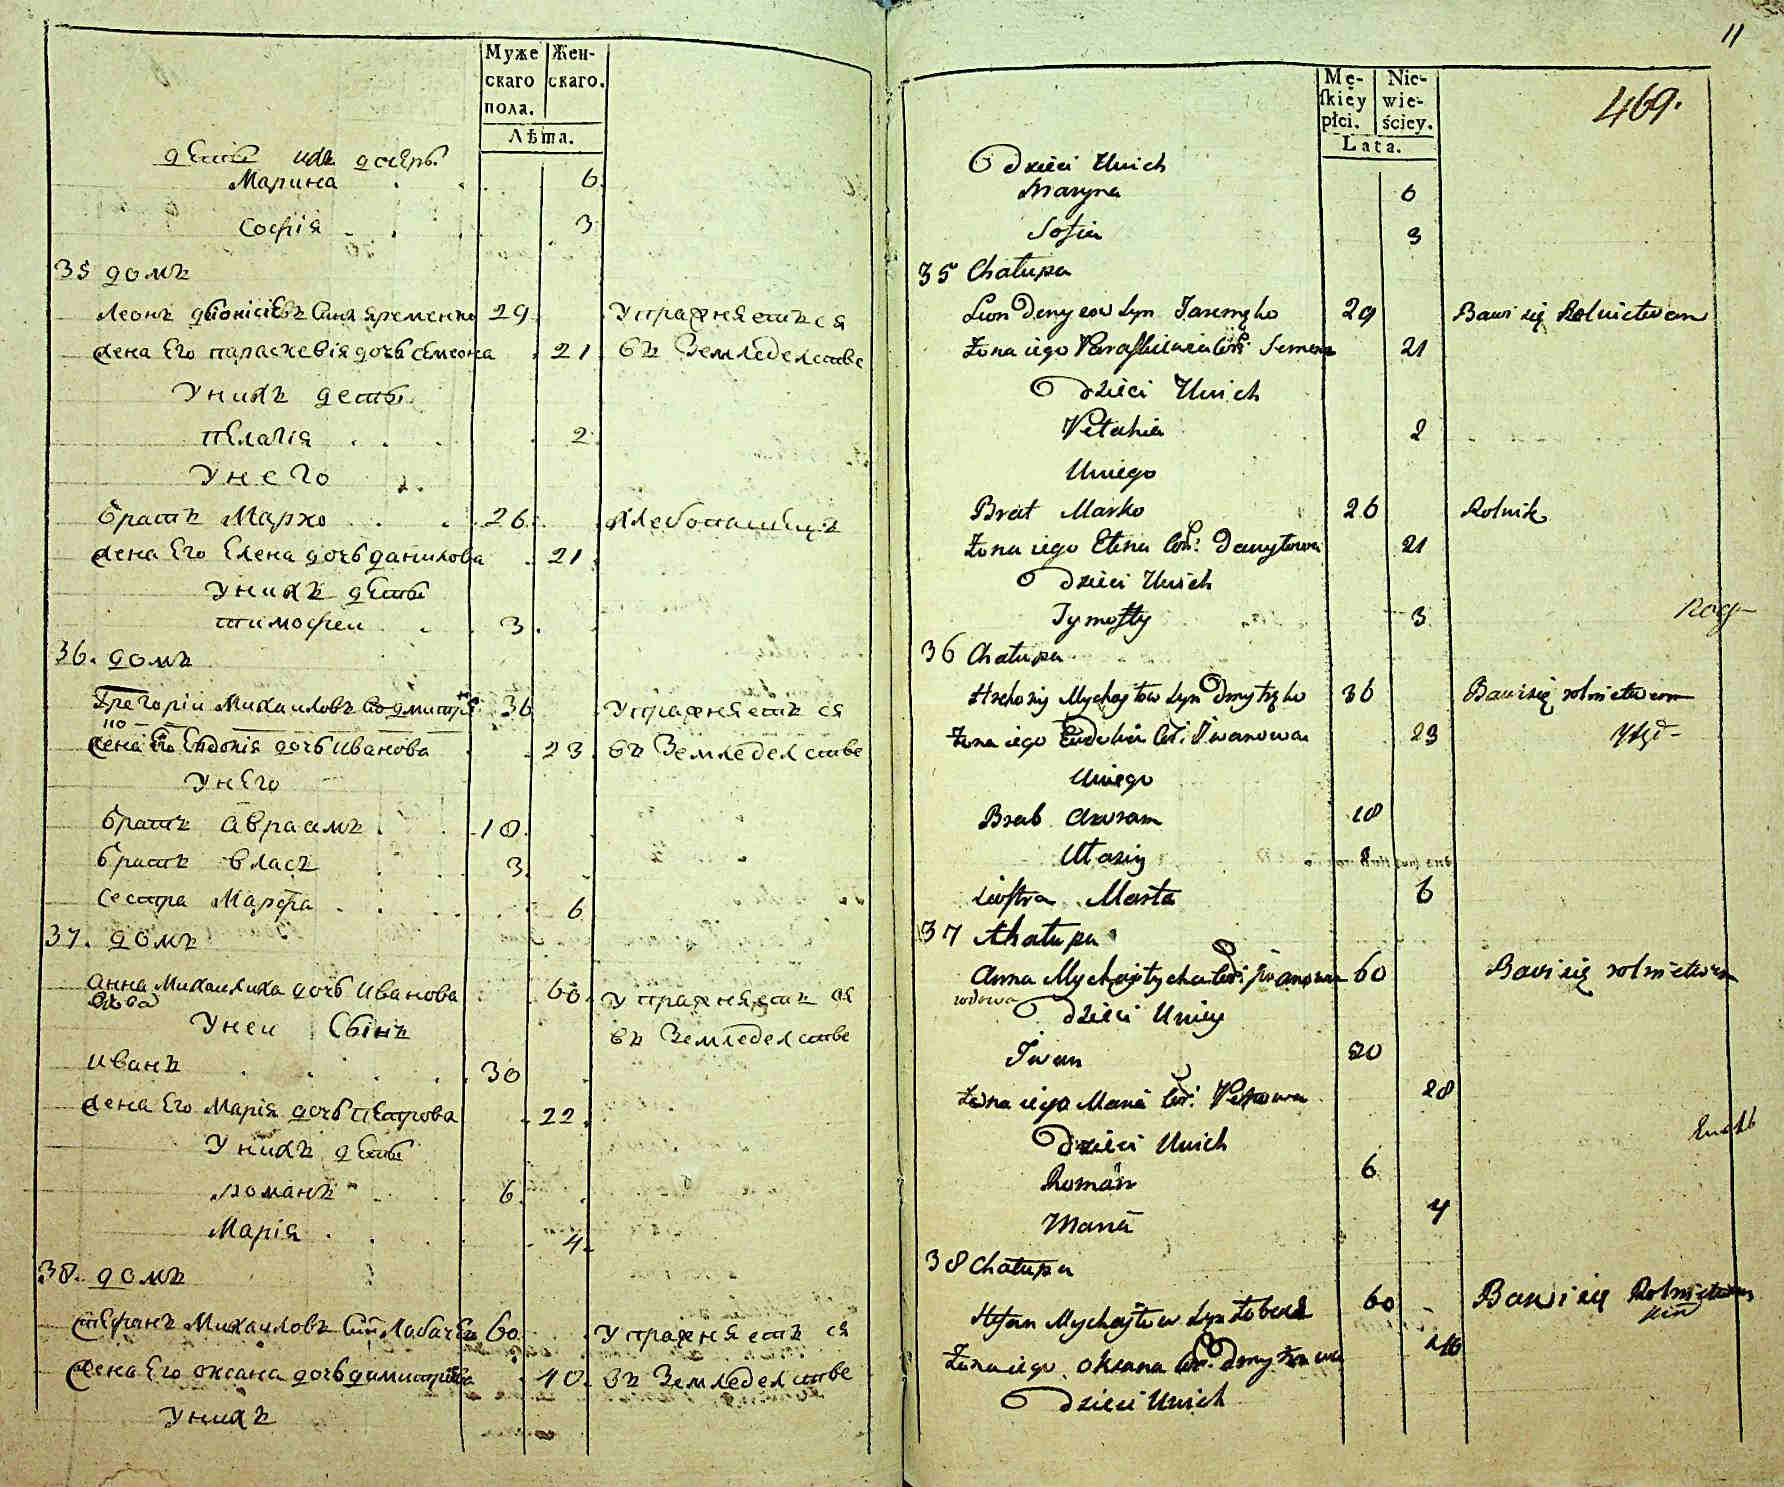 Муже Жен-
скаго скаго.
пола.
Лѣта.
дети ихъ дочерь
Марина 6
Софія 3
35 домъ
Леонъ Дионісіевъ синъ Яременко 29 Упражняетъ ся
жена Его параскевія дочь семеона 21 въ Земледелстве
Унихъ дети
пелагія 2
Унего
братъ Марко 26 хлебопашецъ
жена Его Елена дочь данилова 21
Унихъ дети
тимофеи 3
36. домъ
Грегории Михаиловъ 36 Упражняетъ ся
жена Его Евдокія дочь иванова 23 въ Земледелстве
Унего
братъ Авраамъ 18
братъ власъ 3
сестра Марфа 6
37. домъ
анна Михаилиха дочь иванова 60 Упражняетъ ся
вдова
Унеи Сынъ въ Земледелстве
иванъ 30
жена Его Марія дочь петрова 22
Унихъ дети
романъ 6
Марія 4
38. домъ
стефанъ Михаиловъ син 60 Упражняетъ ся
жена Его оксана дочь димитріева 40 въ Земледелстве
Унихъ
11
469.
Mę- Nie-
ſkiey wie-
płci. ściey.
Lata.
Dzieci Unich
Maryna 6
Sofia 3
35 Chałupa
Lion Denysow Syn Jaremęko 29 Bawi się Rolnictwem
Żona iego Paraſkiewia Cor: Semena 21
Dzieci Unich
Pełahia 2
Uniego
Brat Marko 26 Rolnik
Żona iego Elena Cor: Danyłowa 21
Dzieci Unich
Tymofty 3
36 Chałupa
Hrehory Mychayłow Syn Dmytręko 36 Bawi się rolnictwem
Żona iego Eudokia Cor: Iwanowa 23
Uniego
Brat Awram 18
Ułasiy 8
Siostra Marta 6
37 Chałupa
Anna Mychayłycha Cor: Iwanowa 60 Bawi się rolnictwem
wdowa
Dzieci Uniey
Iwan 30
Żona iego Maria Cor: Petrowa 28
Dzieci Unich
Roman 6
Maria 4
38 Chałupa
Stefan Mychayłow Syn 60 Bawi się Rolnictwem
Żona iego Oksana Cor: Dmytrowa
Dzieci Unich